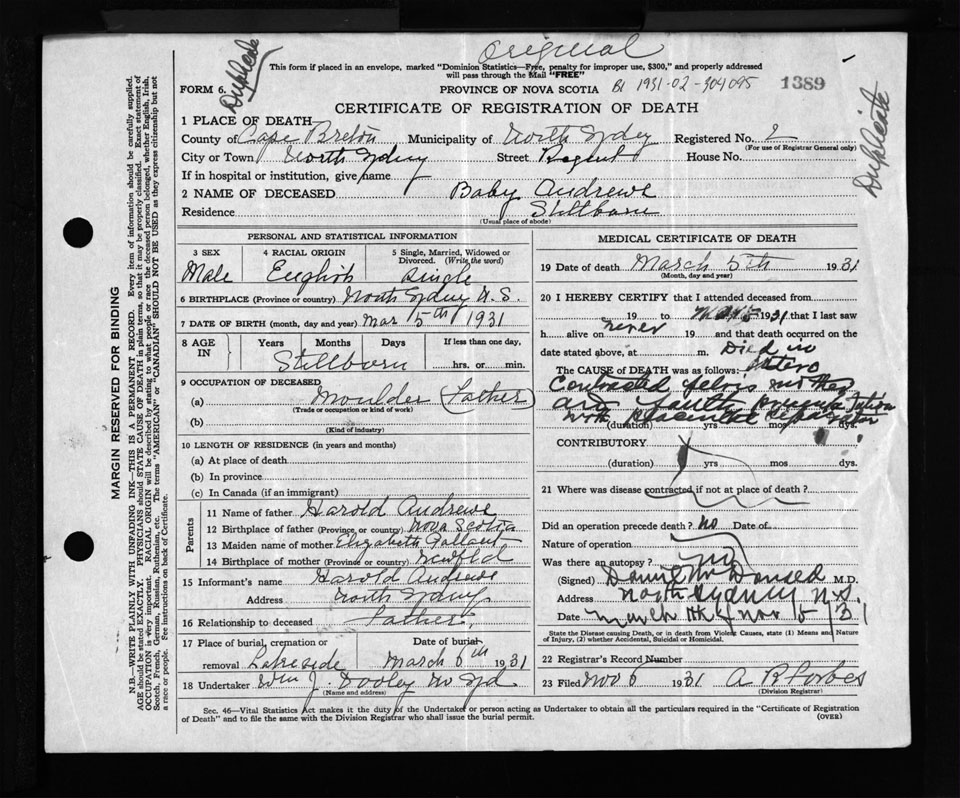 Original
This form if placed in an envelope, marked "Dominion Statistics—Free, penalty for improper use, $300," and properly addressed
will pass through the Mail "FREE"
FORM 6.
Duplicate
PROVINCE OF NOVA SCOTIA
B1 1931-02-304095
1389
Duplicate
CERTIFICATE OF REGISTRATION OF DEATH
1 PLACE OF DEATH
County of Cape Breton Municipality of North Sydney Registered No. 2
(For use of Registrar General only)
City or Town North Sydney Street House No.
If in hospital or institution, give name
2 NAME OF DECEASED Baby Andrews
Residence Stillborn
(Usual place of abode)
PERSONAL AND STATISTICAL INFORMATION
3 SEX 4 RACIAL ORIGIN 5 Single, Married, Widowed or Divorced. (Write the word)
Male English Single
6 BIRTHPLACE (Province or country) North Sydney N.S.
7 DATE OF BIRTH (month, day and year) Mar 5th 1931
8 AGE IN Years Months Days If less than one day,
Stillborn hrs. or min.
9 OCCUPATION OF DECEASED
(a) Moulder (Father)
(Trade or occupation or kind of work)
(b)
(Kind of industry)
10 LENGTH OF RESIDENCE (in years and months)
(a) At place of death
(b) In province
(c) In Canada (if an immigrant)
Parents
11 Name of father Harold Andrews
12 Birthplace of father (Province or country) Nova Scotia
13 Maiden name of mother Elizabeth Gallant
14 Birthplace of mother (Province or country) Newfld
15 Informant's name Harold Andrews
Address North Sydney
16 Relationship to deceased Father
17 Place of burial, cremation or removal Lakeside Date of burial March 6th 1931
18 Undertaker Wm J. Dooley No Syd
(Name and address)
MEDICAL CERTIFICATE OF DEATH
19 Date of death March 5th 1931
(Month, day and year)
20 I HEREBY CERTIFY that I attended deceased from
19 to Mar 5 1931 that I last saw
h alive on never 19 and that death occurred on the
date stated above, at m. Died in
The CAUSE of DEATH was as follows: Utero
Contracted pelvis mother
and faulty
with placental
(duration) yrs mos dys.
CONTRIBUTORY
(duration) yrs mos dys.
21 Where was disease contracted if not at place of death?
Did an operation precede death? no Date of
Nature of operation
Was there an autopsy? no
(Signed) Daniel McDonald M.D.
Address North Sydney N.S.
Date 31
State the Disease causing Death, or in death from Violent Causes, state (1) Means and Nature
of Injury, (2) whether Accidental, Suicidal or Homicidal.
22 Registrar's Record Number
23 Filed Nov 6 1931 A R Forbes
(Division Registrar)
Sec. 46—Vital Statistics Act makes it the duty of the Undertaker or person acting as Undertaker to obtain all the particulars required in the "Certificate of Registration
of Death" and to file the same with the Division Registrar who shall issue the burial permit.
(OVER)
MARGIN RESERVED FOR BINDING
N.B.—WRITE PLAINLY WITH UNFADING INK—THIS IS A PERMANENT RECORD. Every item of information should be carefully supplied.
AGE should be stated EXACTLY. PHYSICIANS should STATE CAUSE OF DEATH in plain terms, so that it may be properly classified. Exact statement of
OCCUPATION is very important. RACIAL ORIGIN will be described by stating to what people or race the deceased person belonged, whether English, Irish,
Scotch, French, German, Russian, Ruthenian, etc. The terms "AMERICAN" or "CANADIAN" SHOULD NOT BE USED as they express citizenship but not
a race or people. See instructions on back of Certificate.